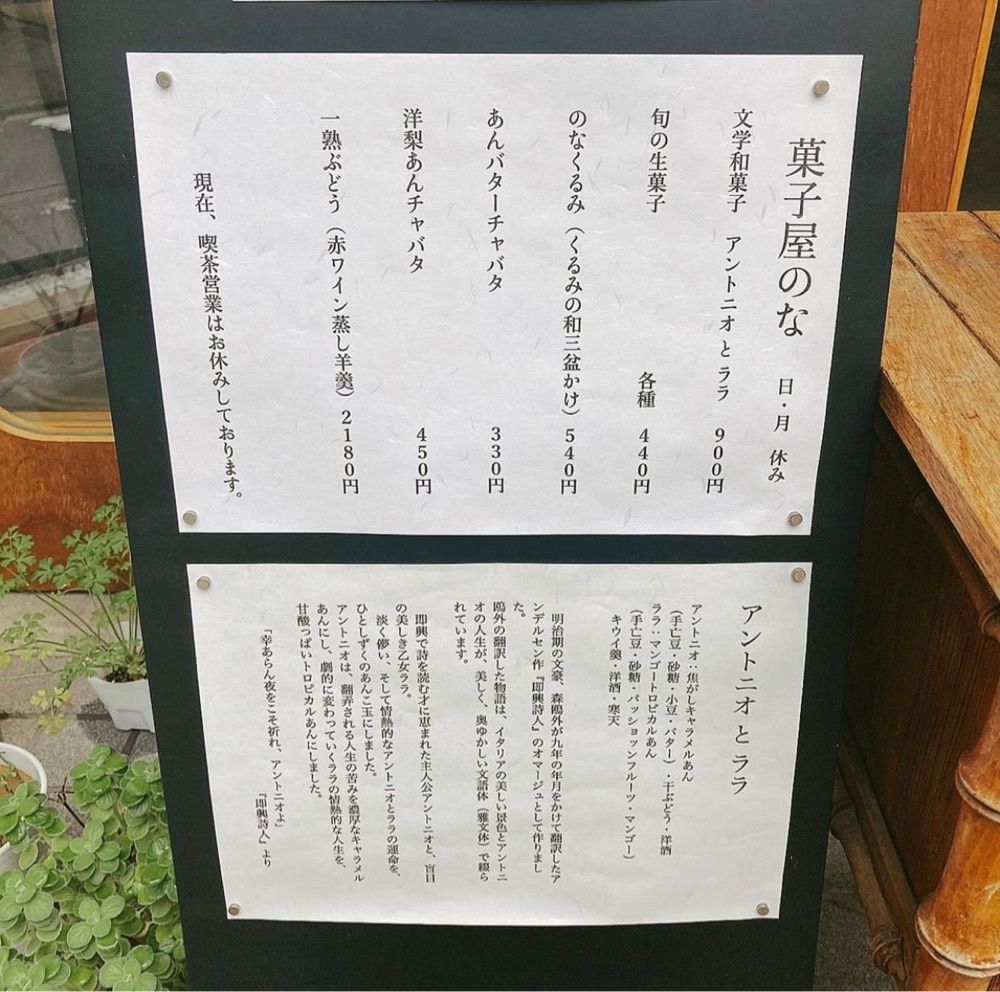 菓子屋のな 日・月 休み
文学和菓子 アントニオとララ 900円
旬の生菓子 各種 440円
のなくるみ(くるみの和三盆かけ)540円
あんバターチャバタ 330円
洋梨あんチャバタ 450円
一熟ぶどう(赤ワイン蒸し羊羹)2180円
現在、喫茶営業はお休みしております。
アントニオとララ
アントニオ:焦がしキャラメルあん
(手亡豆・砂糖・小豆・バター)・干ぶどう・洋酒
ララ:マンゴートロピカルあん
(手亡豆・砂糖・パッションフルーツ・マンゴー)
キウイ羹・洋酒・寒天
明治期の文豪、森鴎外が九年の年月をかけて翻訳したア
ンデルセン作『即興詩人』のオマージュとして作りまし
た。
鴎外の翻訳した物語は、イタリアの美しい景色とアントニ
オの人生が、美しく、奥ゆかしい文語体(雅文体)で綴ら
れています。
即興で詩を読む才に恵まれた主人公アントニオと、盲目
の美しき乙女ララ。
淡く儚い、そして情熱的なアントニオとララの運命を、
ひとしずくのあんこ玉にしました。
アントニオは、翻弄される人生の苦みを濃厚なキャラメル
あんにし、劇的に変わっていくララの情熱的な人生を、
甘酸っぱいトロピカルあんにしました。
「幸あらん夜をこそ祈れ、アントニオよ」
『即興詩人』より